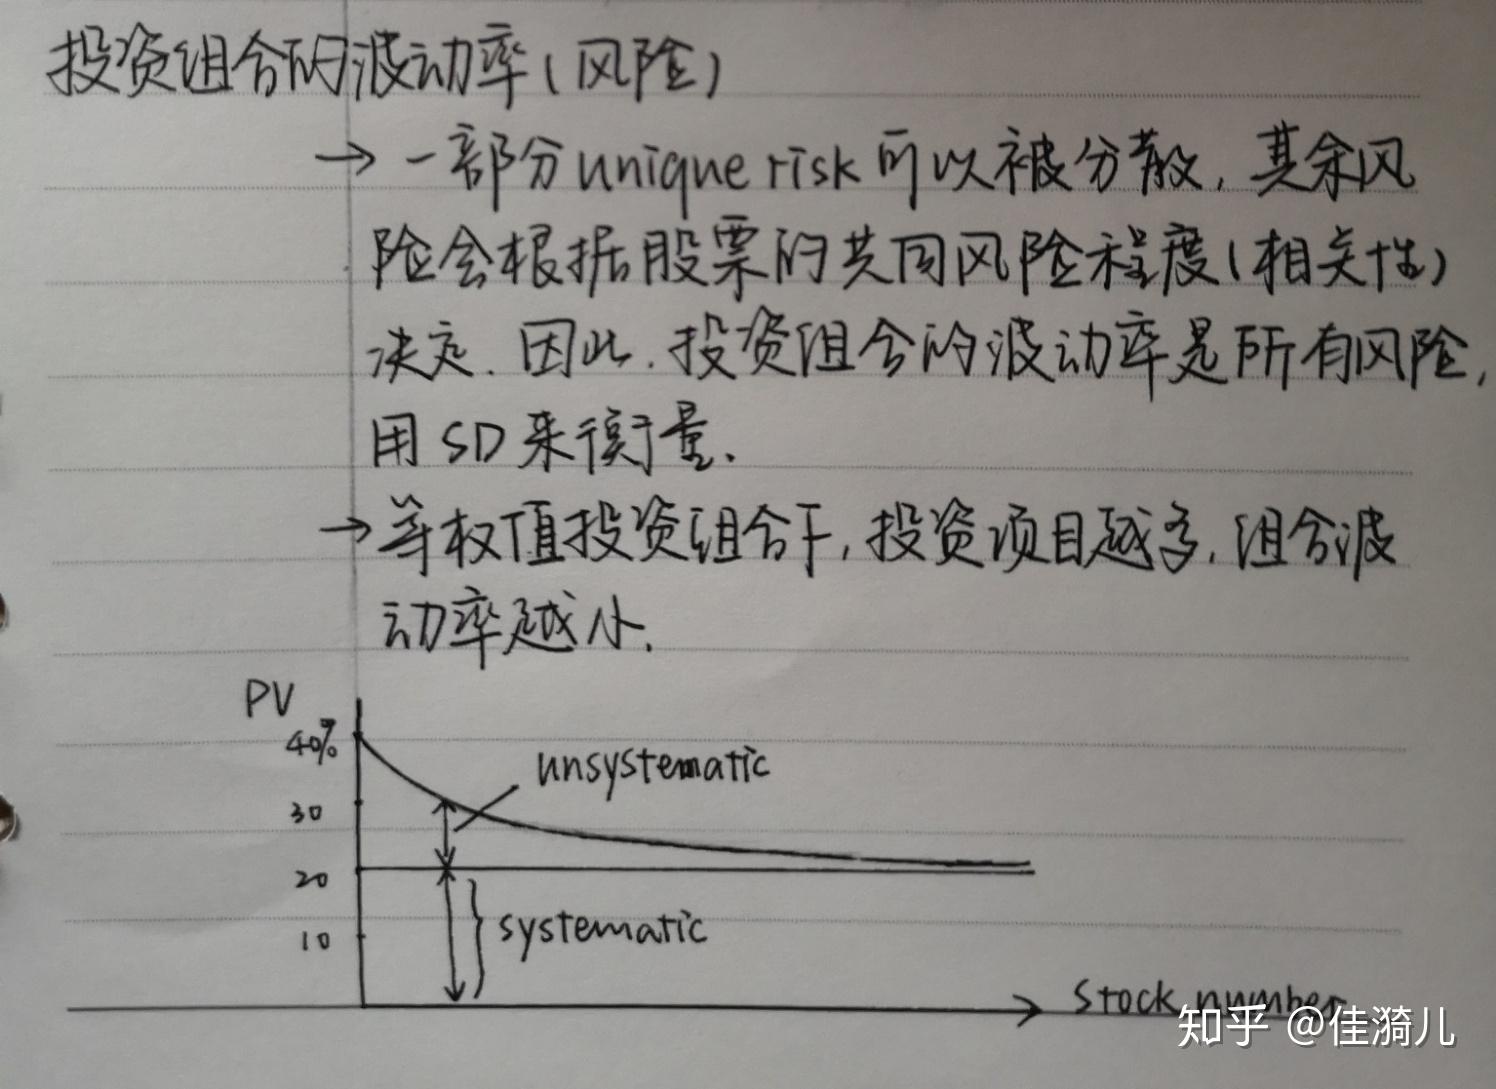 投资组合的波动率(风险)
→ 一部分unique risk可以被分散,其余风
险会根据股票的共同风险程度(相关性)
决定.因此.投资组合的波动率是所有风险,
用SD来衡量.
→ 等权值投资组合下,投资项目越多,组合波
动率越小.
PV
40%
unsystematic
30
20
systematic
10
Stock number
知乎 @佳漪儿